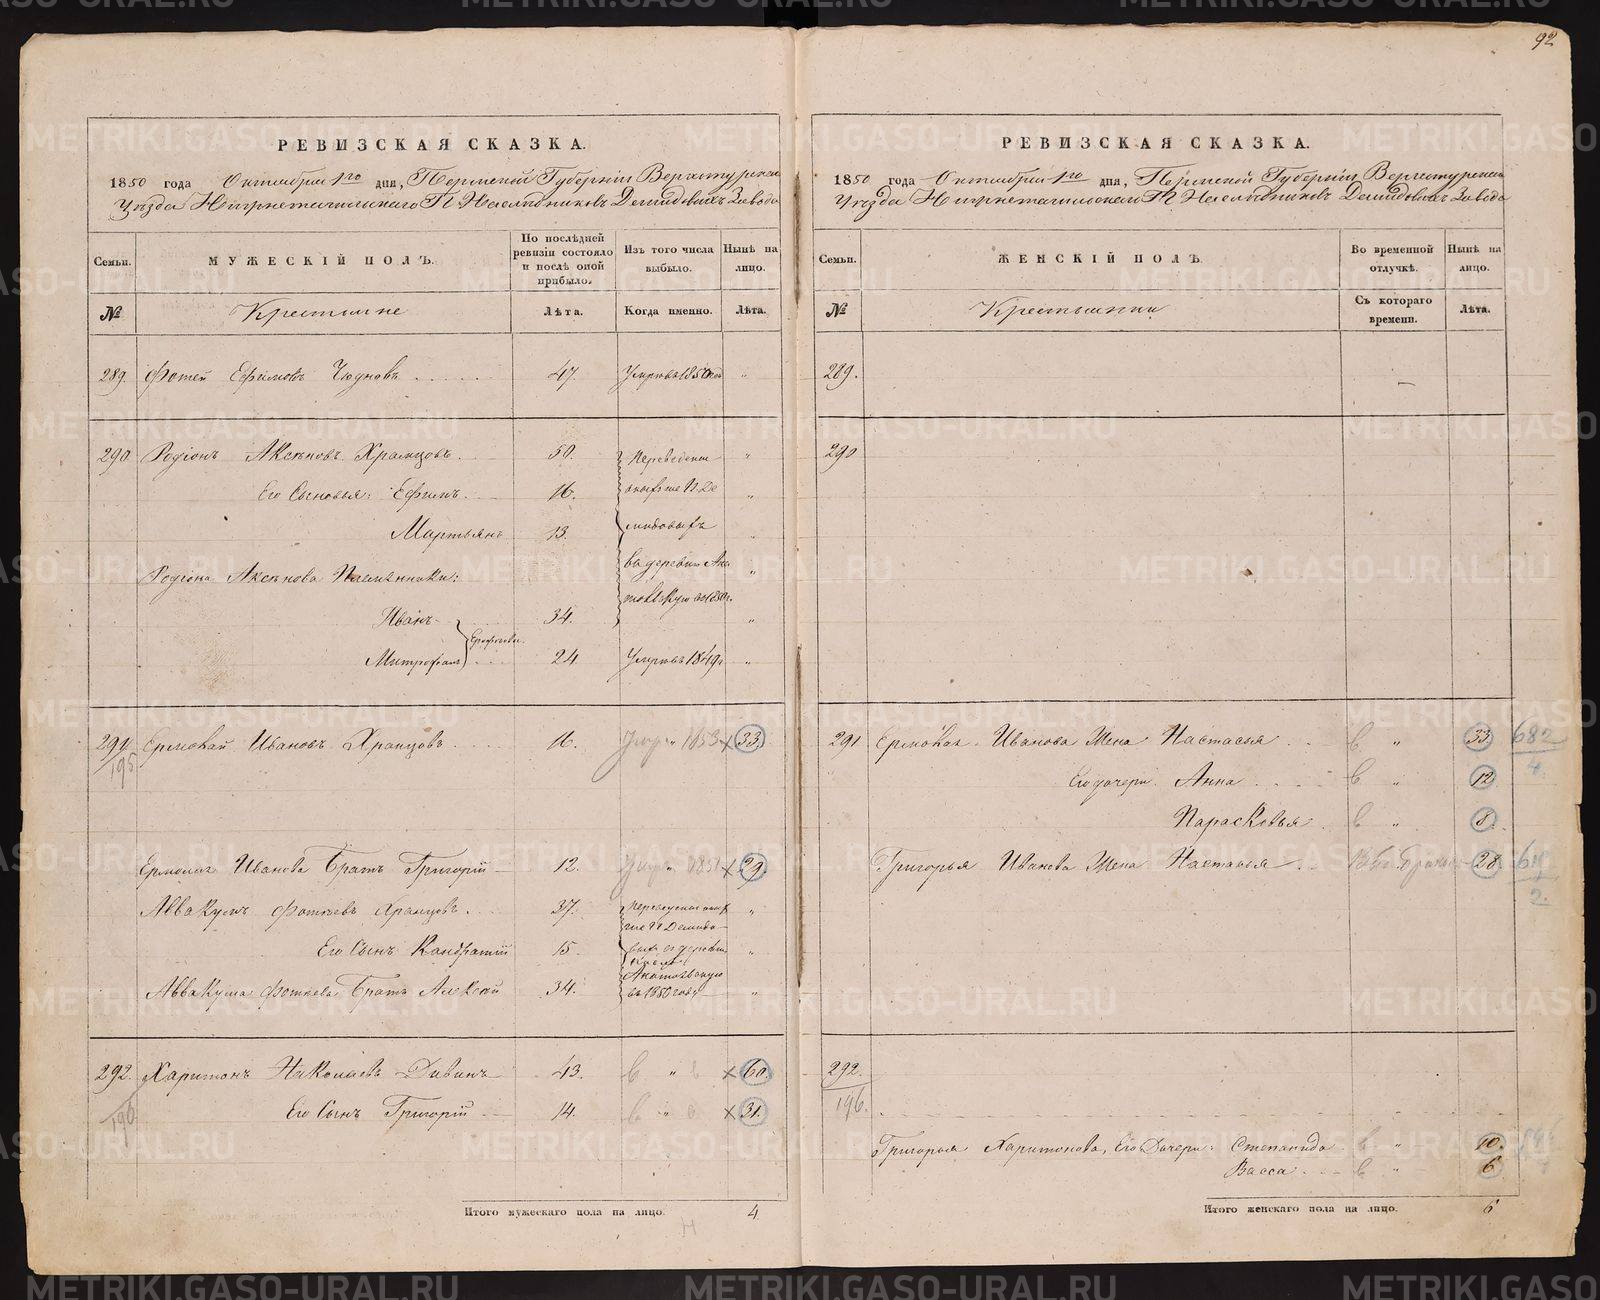 92
РЕВИЗСКАЯ СКАЗКА.
1850 года Октября 1го дня, Пермской Губернии Верхотурскаго
Уѣзда Нижнетагильскаго Г. Наслѣдниковъ Демидовыхъ Завода
Семьи. МУЖЕСКІЙ ПОЛЪ. По послѣдней ревизіи состояло и послѣ оной прибыло. Изъ того числа выбыло. Нынѣ на лицо.
№ Крестьяне Лѣта. Когда именно. Лѣта.
289. Фотей Ефимовъ Чудновъ 47. Умръ въ 1850 "
290 Родіонъ Аксѣновъ Храмцовъ. 50. Переведены "
Его Сыновья: Ефимъ. 16. "
Мартьянъ 13. "
Родіона Аксѣнова Племянники: въ деревню "
Иванъ 34. "
Митрофанъ Ерофѣевы. 24 Умръ въ 1849 "
291 Ермолай Ивановъ Храмцовъ 16. 1853 × 33.
195
Ермолая Иванова Братъ Григорій 12. × 29.
Аввакумъ Фотѣевъ Храмцовъ. 37. "
Его Сынъ Кондратій 15. "
Аввакума Фотѣева Братъ Алексѣй 34. въ 1850 году "
292. Харитонъ Николаевъ Дивинъ 43. " × 60.
196 Его Сынъ Григорій 14. " × 31.
Итого мужескаго пола на лицо. 4
РЕВИЗСКАЯ СКАЗКА.
1850 года Октября 1го дня, Пермской Губерніи Верхотурскаго
Уѣзда Нижнетагильскаго Г. Наслѣдниковъ Демидовыхъ Завода
Семьи. ЖЕНСКІЙ ПОЛЪ. Во временной отлучкѣ. Нынѣ на лицо.
№ Крестьянки Съ котораго времени. Лѣта.
289.
290
291 Ермолая Иванова Жена Настасья " 33 682
4.
Его дочери Анна " 12
Парасковья " 8.
Григорья Иванова Жена Настасья 28
2.
292.
196.
Григорья Харитонова, Его Дочери: Степанида " 10.
Васса " 6
Итого женскаго пола на лицо. 6
METRIKI.GASO-URAL.RU